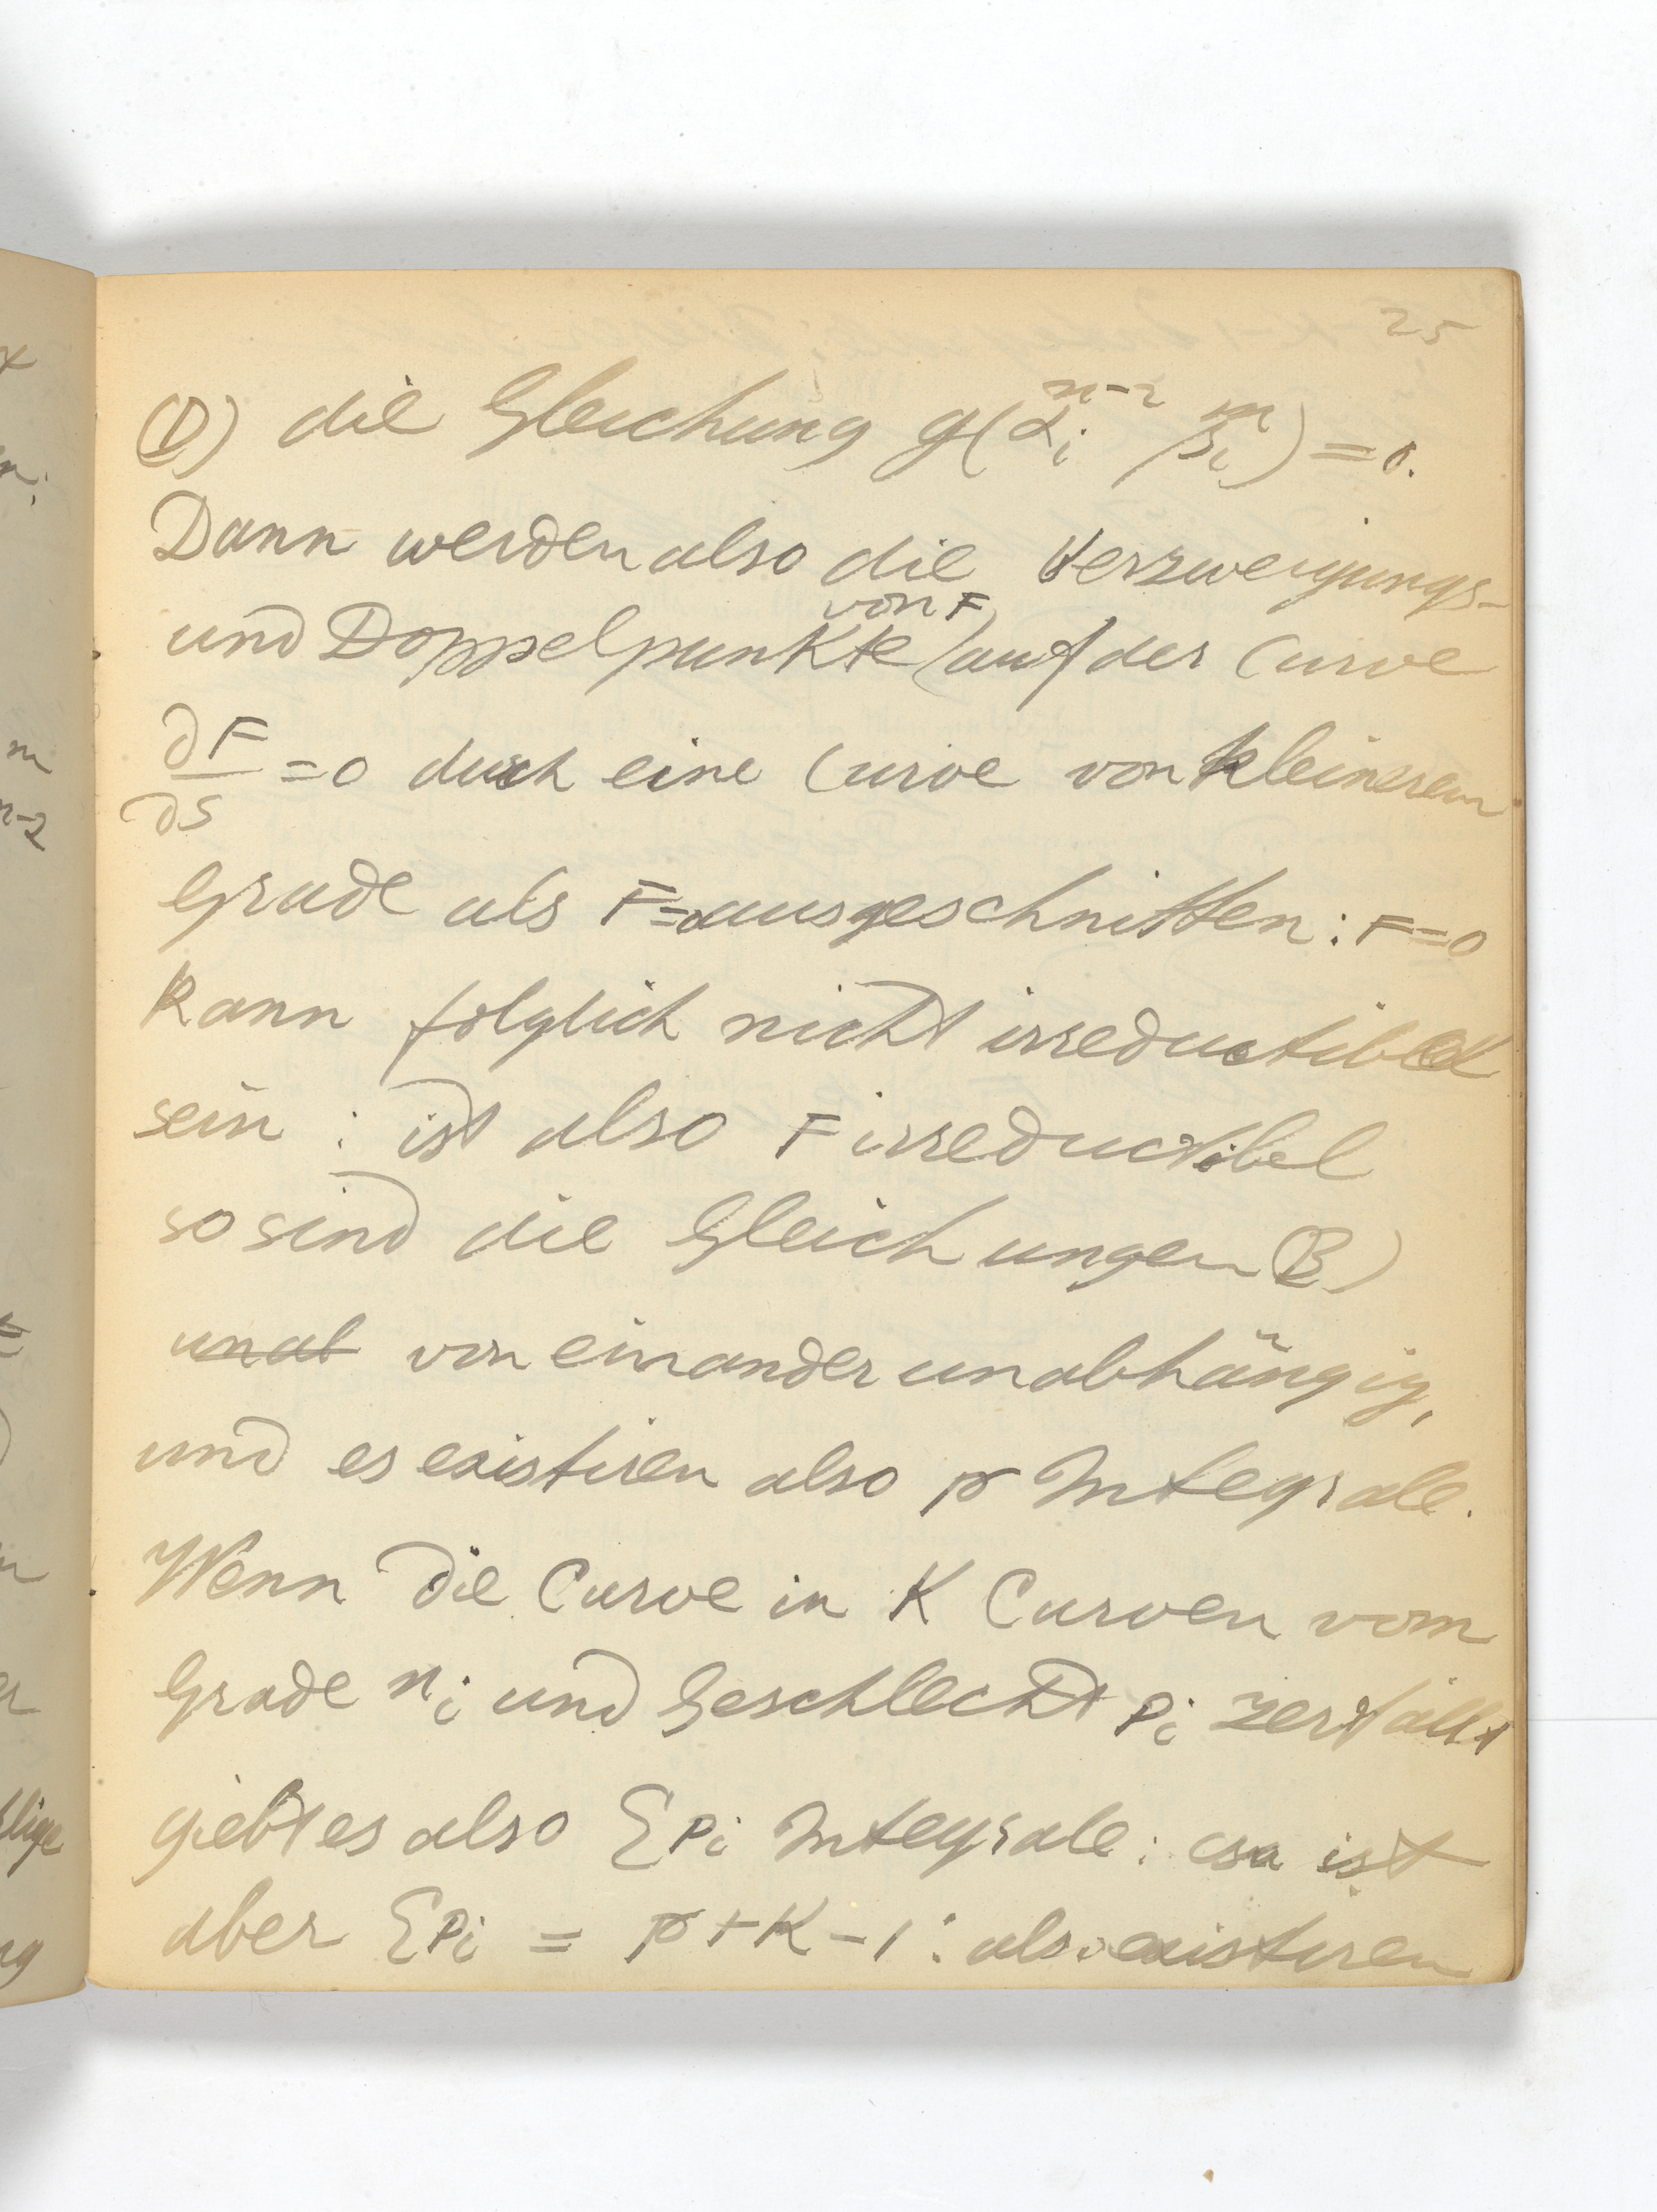 25
(D) die Gleichung g(α_i^{n-2} β_i^m) = 0.
Dann werden also die Verzweigungs-
und Doppelpunkte von F auf der Curve
∂F/∂S = 0 durch eine Curve von kleinerem
Grade als F=0 ausgeschnitten: F=0
kann folglich nicht irreductibel
sein : ist also F irreductibel
so sind die Gleichungen B)
unab von einander unabhängig,
und es existiren also p Integrale.
Wenn die Curve in K Curven vom
Grade n_i und Geschlecht p_i zerfällt
giebt es also Σp_i Integrale : ist
aber Σp_i = p + K - 1 : also existiren